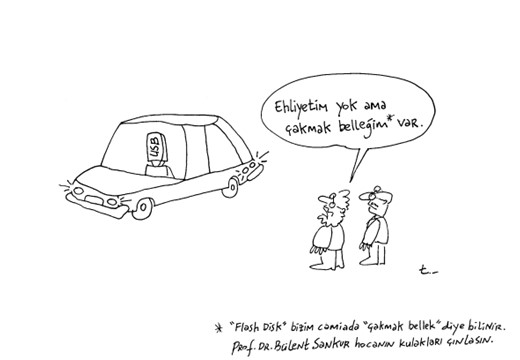 USB
Ehliyetim yok ama
çakmak belleğim* var.
t_
* "Flash Disk" bizim camiada "çakmak bellek" diye bilinir.
Prof. Dr. Bülent Sankur hocanın kulakları çınlasın.